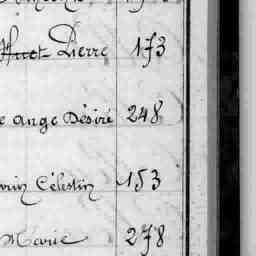 Pierre 173
e Ange Désiré 248
Célestin 153
Marie 278